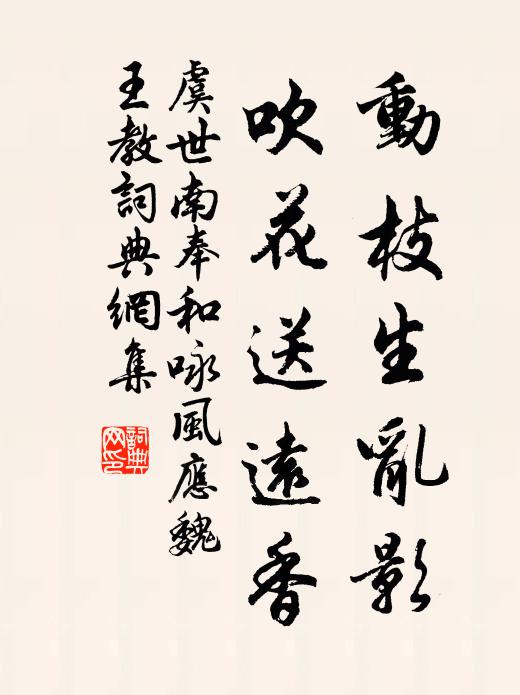 動枝生亂影
吹花送遠香
虞世南奉和咏風應魏
王教詞典網集
詞典网印